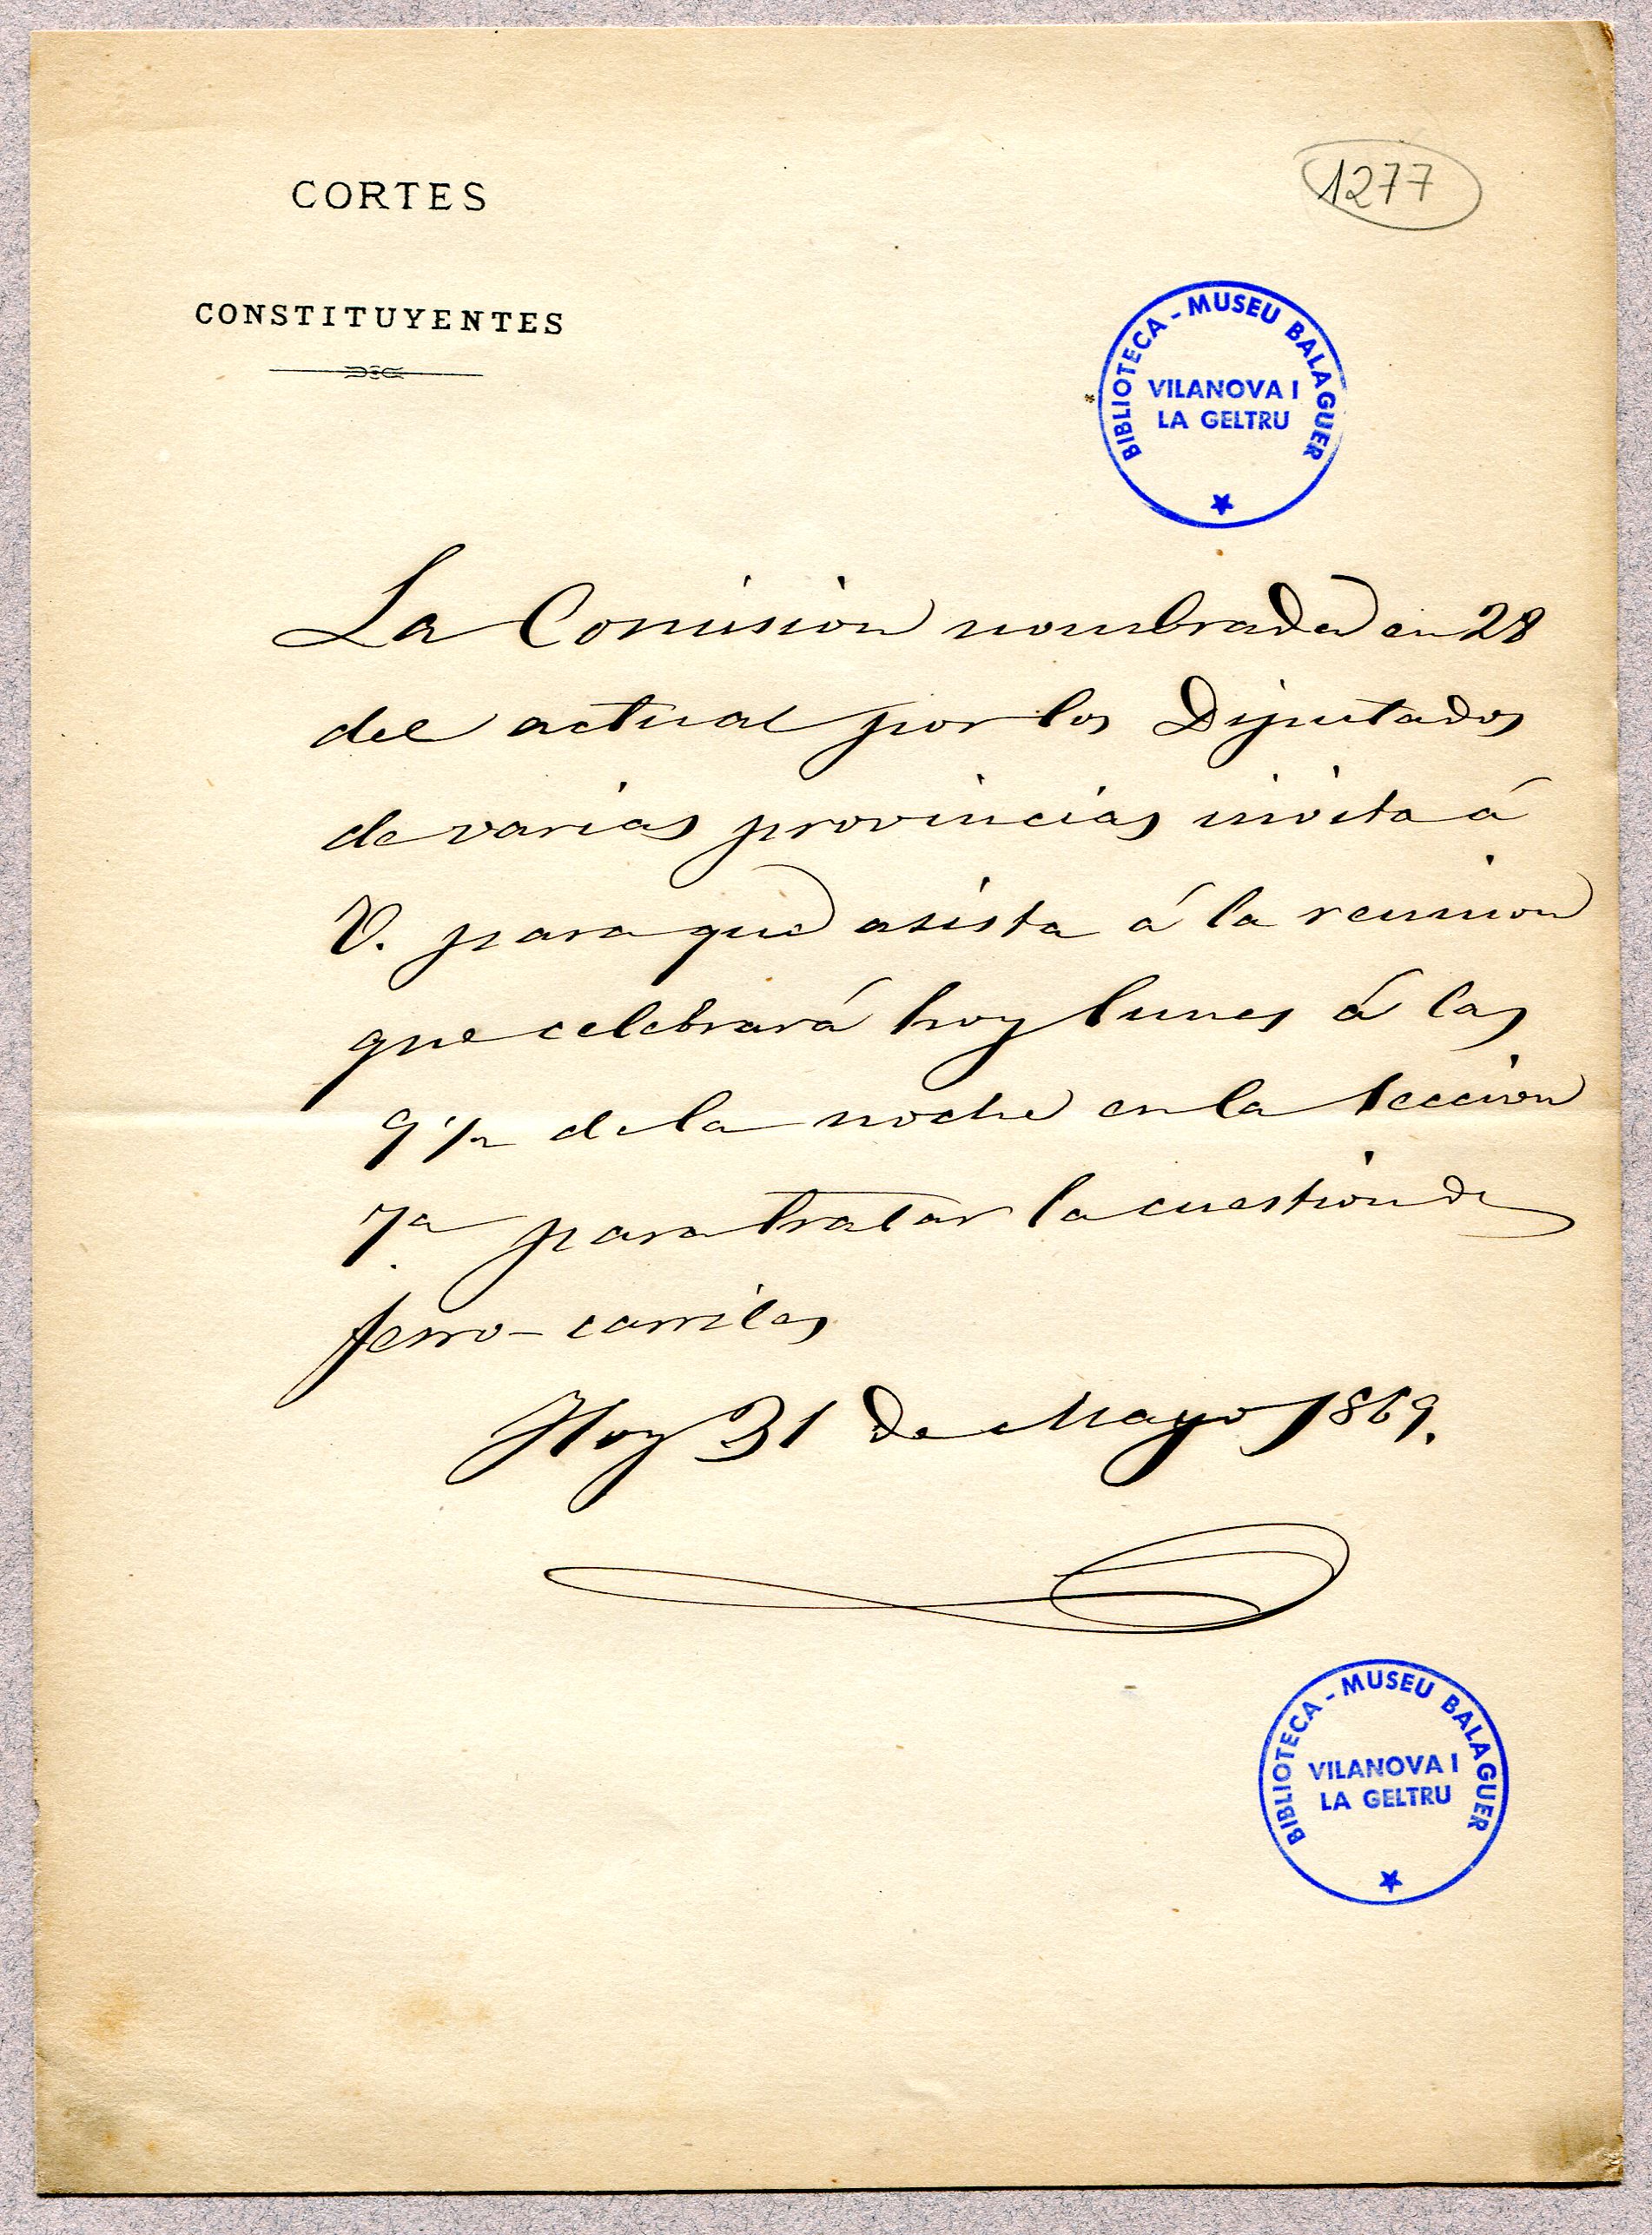 CORTES
CONSTITUYENTES
1277
BIBLIOTECA - MUSEU BALAGUER
VILANOVA I
LA GELTRU
La Comision nombrada en 28
del actual por los Diputados
de varias provincias invita á
V. para que asista á la reunion
que celebrará hoy lunes á las
9 1/2 de la noche en la seccion
7.ª para tratar la cuestion de
ferro-carriles
Hoy 31 de Mayo 1869.
BIBLIOTECA - MUSEU BALAGUER
VILANOVA I
LA GELTRU